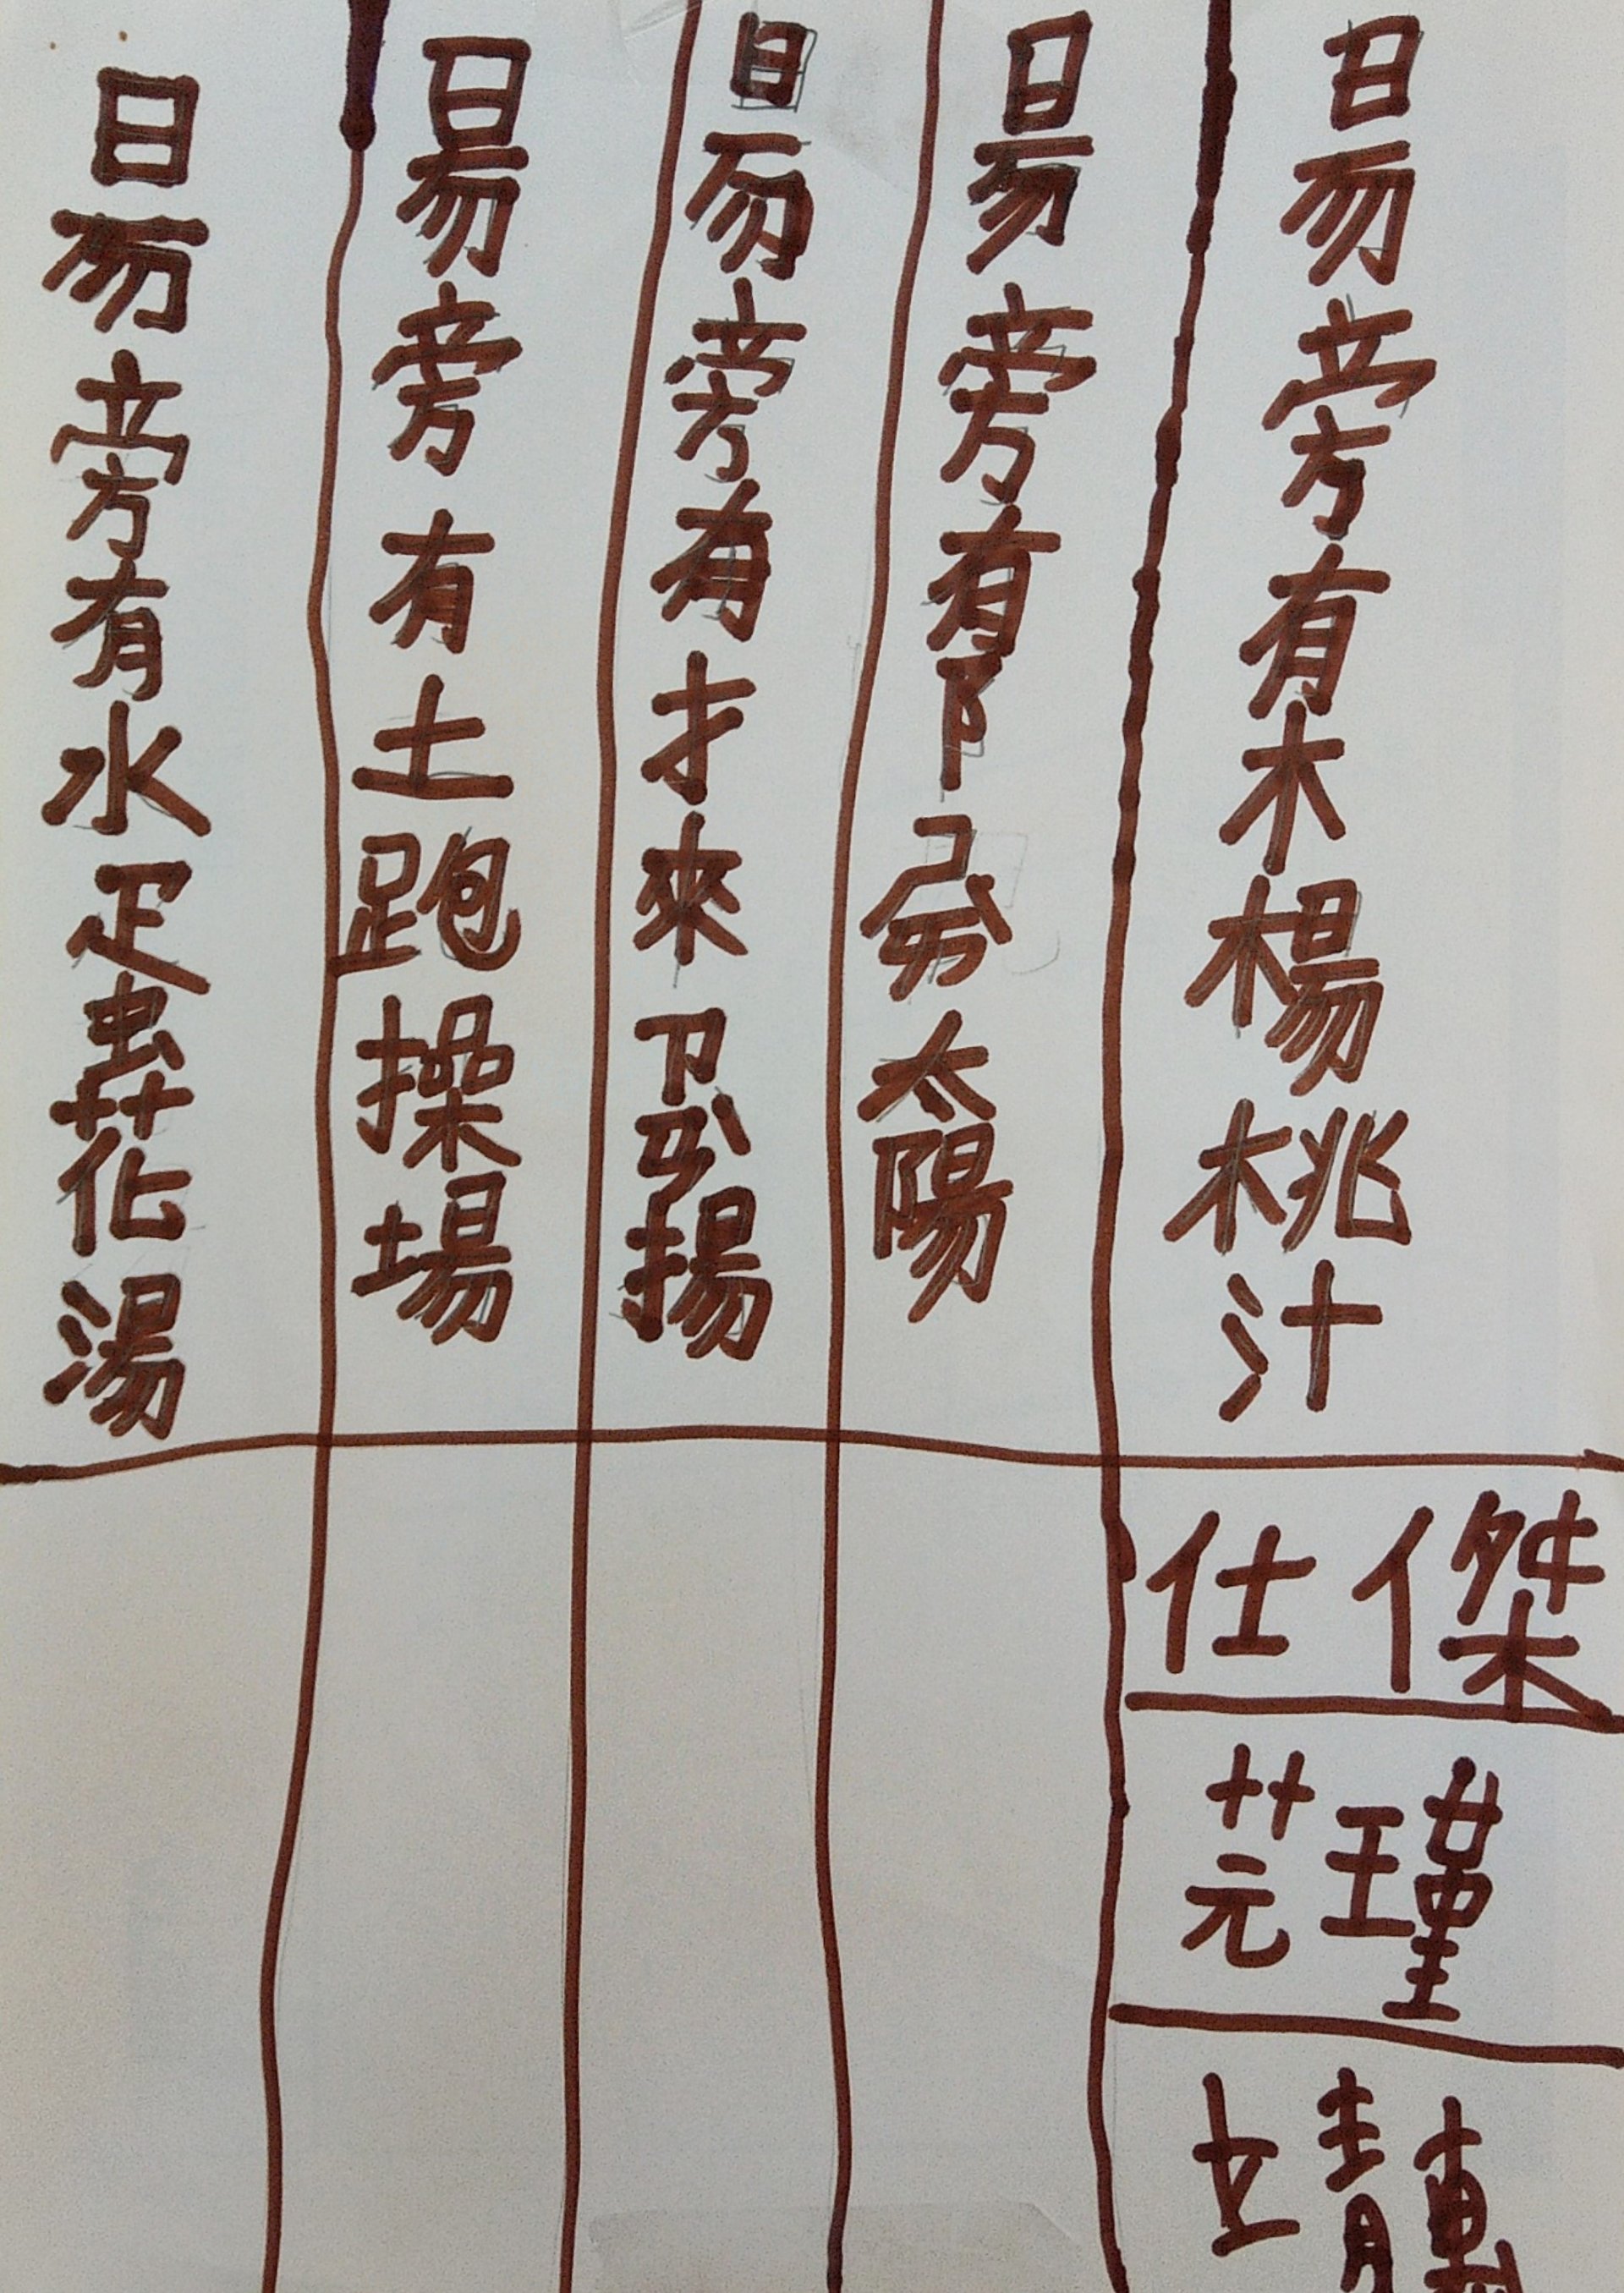 昜旁有木楊桃汁
昜旁有阝太陽
昜旁有才來揚
昜旁有土跑操場
昜旁有水蛋花湯
仕傑
芫瑾
靖